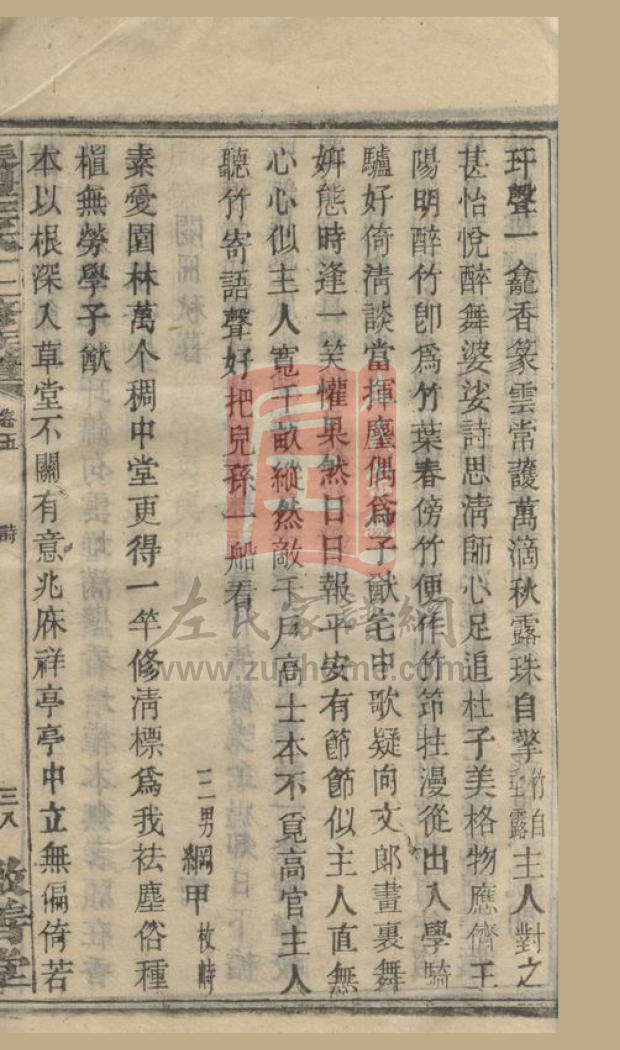 玕聲一龕香篆雲常護萬滴秋露珠自擎竹自生露主人對之
甚怡悅醉舞婆娑詩思淸師心足追杜子美格物應儕王
陽明醉竹卽爲竹葉春傍竹便作竹笻拄漫從出入學騎
驢好倚淸談當揮麈偶爲子猷宅中歌疑向文郞畫裏舞
妍態時逢一笑懽果然日日報平安有節節似主人直無
心心似主人寬千畝縱然敵千戶高士本不覓高官主人
聽竹寄語聲好把兒孫一船看
三男綱甲枚時
素愛園林萬个稠中堂更得一竿修淸標爲我袪塵俗種
植無勞學子猷
本以根深入草堂不關有意兆庥祥亭亭中立無偏倚若
卷五
詩
三八
敦壽堂
左氏家譜網
www.zuohome.com